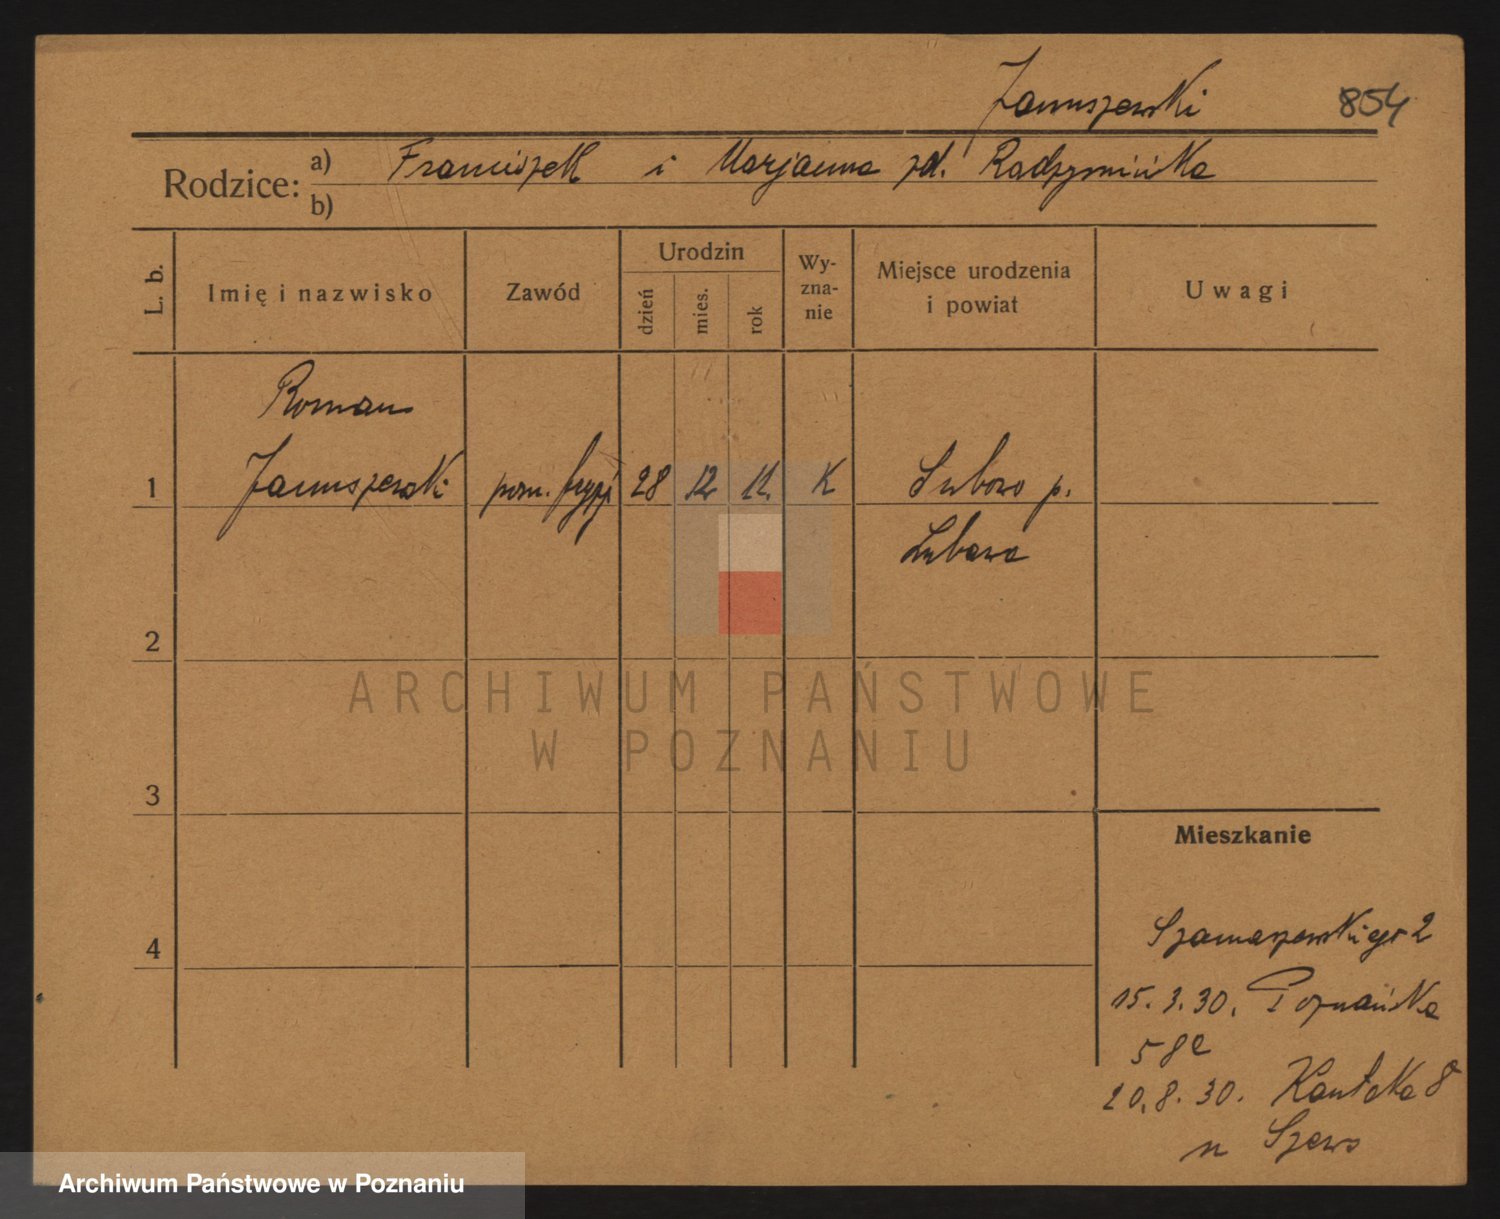 Januszewski 854
Rodzice: a) Franciszek i Marjanna zd. Radzymińska
b)
L. b. Imię i nazwisko Zawód Urodzin dzień mies. rok Wy-zna-nie Miejsce urodzenia i powiat Uwagi
Roman
1 Januszewski pom. fryzj. 28 12 11. K Lubowo p.
Lubawa
2
ARCHIWUM PAŃSTWOWE
W POZNANIU
3
Mieszkanie
4
Szamarzewskiego 2
15. 3. 30. Poznańska
58e
20. 8. 30. Kantaka 8
u Szews
Archiwum Państwowe w Poznaniu